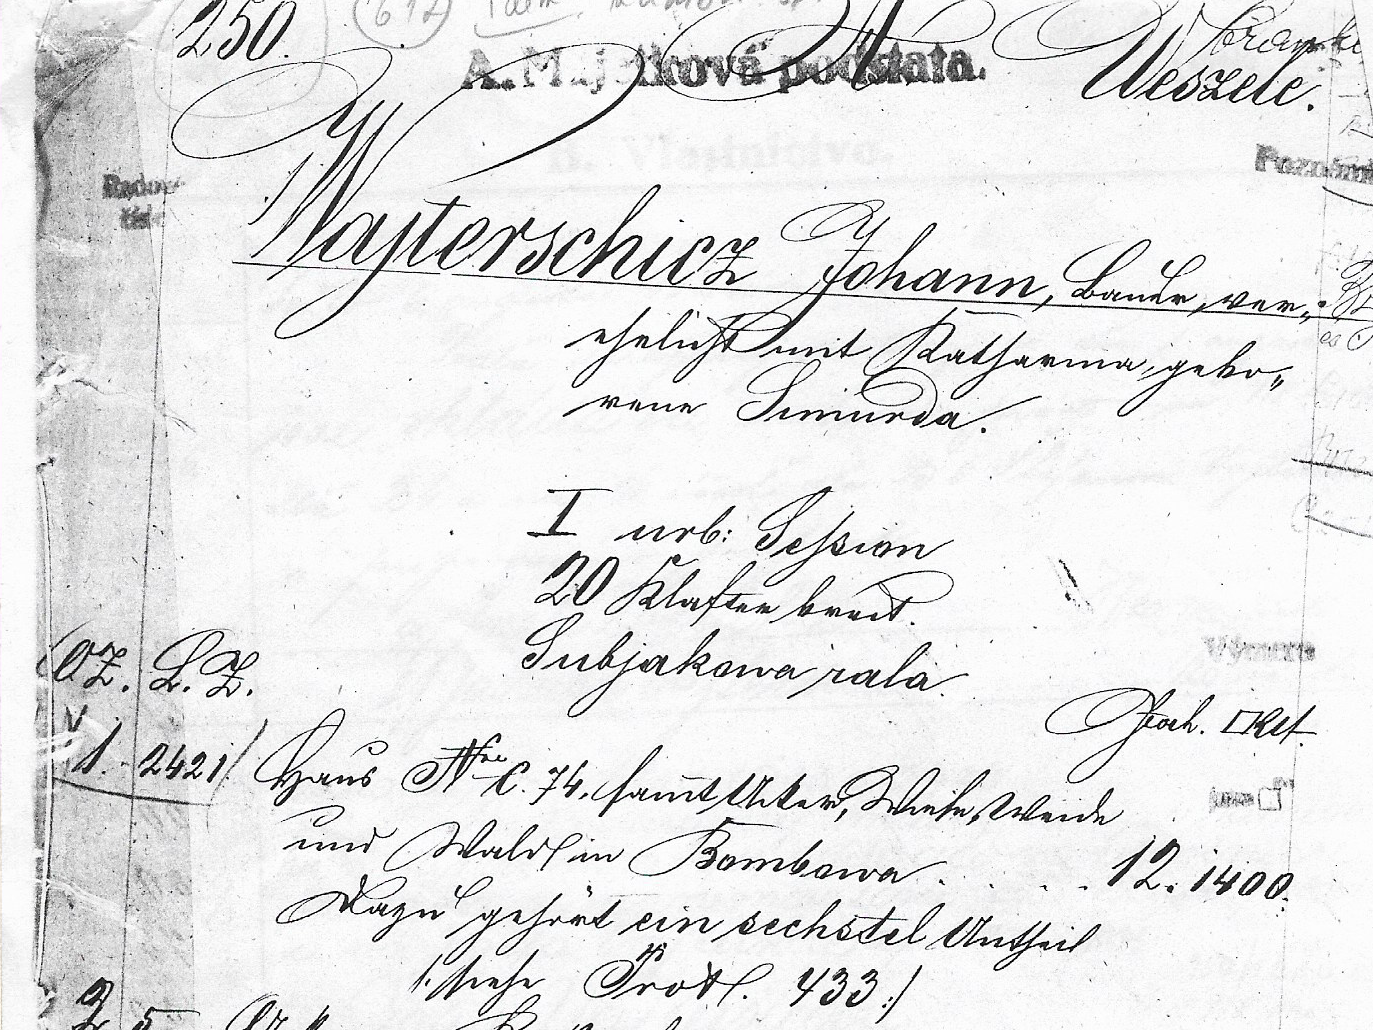 250.
A. Majetková podstata.
Weszele.
Poznámk
Radové
číslo
Wajterschicz Johann, Bauer, ver„
ehelicht mit Katharina, gebo„
rene Smiurda.
I urb: Session
20 Klafter breit.
Subjakowa rala
OZ. L. Z.
Výmera
Joch. □Klf.
1. 2421/ Haus Nro C. 74. samt Acker, Wiese, Weide
und Wald in Bombowa . . . . 12. 1400.
Dazu gehört ein sechstel Antheil
/: siehe Prot. 433 :/
2 5